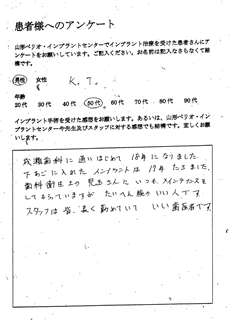 患者様へのアンケート
山形ペリオ・インプラントセンターでインプラント治療を受けた患者さんにア
ンケートをお願いしています。ご記入ください。お名前は記入なさらなくて結
構です。
男性 女性 K.T.
年齢
20代 30代 40代 50代 60代 70代 80代 90代
インプラント手術を受けた感想をお願いします。あるいは、山形ペリオ・イン
プラントセンターや先生及びスタッフに対する感想でも結構です。宜しくお願
いします。
成瀬歯科に通いはじめて 18年になりました。
下あごに入れたインプラントは 17年たちました。
歯科衛生士の 見玉さんに いつも メインテナンスを
してもらっていますが たいへん腕のいい人です
スタッフは皆、長く勤めていて いい歯医者です。